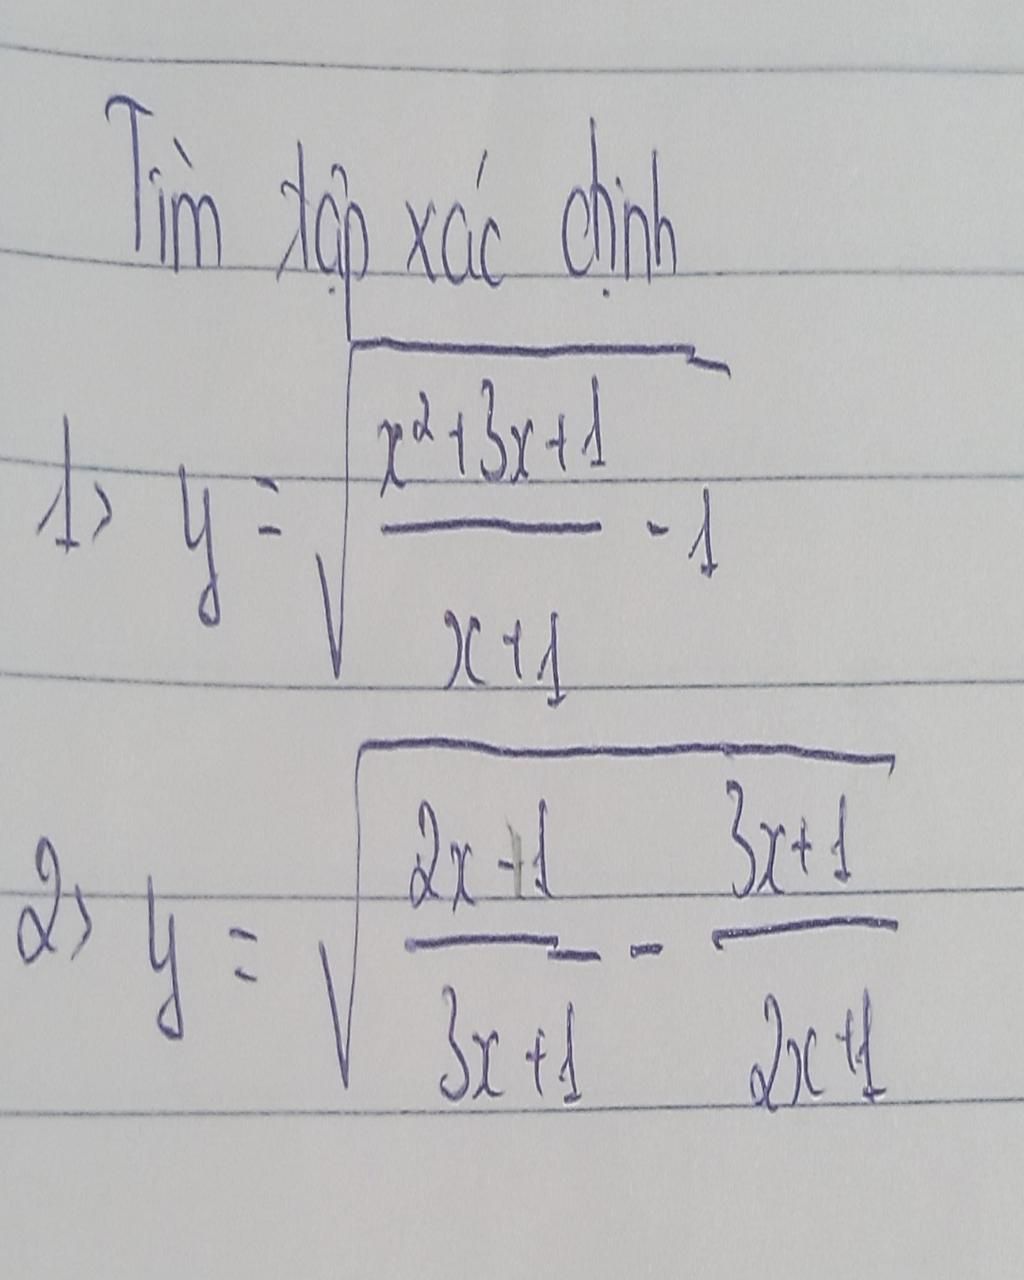 Tìm tập xác định
1> y = √((x²+3x+1)/(x+1) - 1)
2> y = √((2x+1)/(3x+1) - (3x+1)/(2x+1))